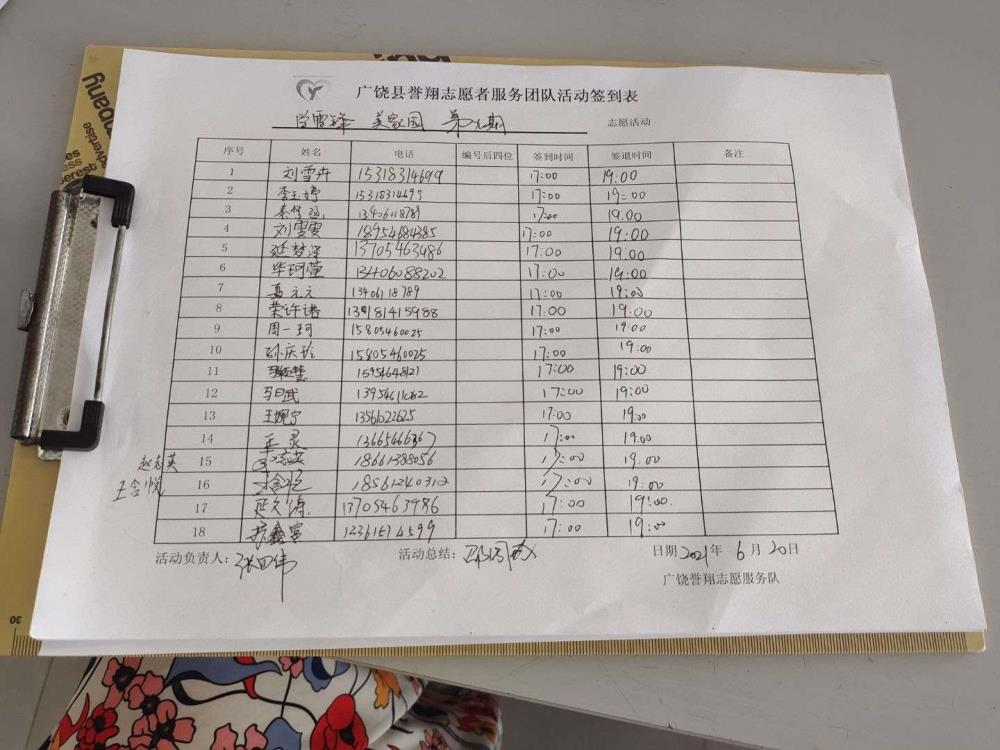 mpany
advertise
广饶县誉翔志愿者服务团队活动签到表
学雷锋 美家园 第九期 志愿活动
序号 姓名 电话 编号后四位 签到时间 签退时间 备注
1 刘雪卉 15318314699 17:00 19:00
2 李玉婷 15318314699 17:00 19:00
3 13406118789 17:00 19:00
4 刘雯雯 18954684385 17:00 19:00
5 延梦泽 13705463486 17:00 19:00
6 毕珂萱 13406088202 17:00 19:00
7 元元 13406118789 17:00 19:00
8 荣许诺 17:00 19:00
9 周一珂 15805460025 17:00 19:00
10 孙庆玲 15805460025 17:00 19:00
11 15954648121 17:00 19:00
12 17:00 19:00
13 王婉宁 1356622625 17:00 19:00
14 灵 17:00 19:00
15 18661388056 17:00 19:00
赵志英
16 18561240312 17:00 19:00
王含悦
17 延久涛 13705463986 17:00 19:00
18 17:00 19:00
活动负责人: 张四伟 活动总结: 日期 2021年 6月 20日
广饶誉翔志愿服务队
30